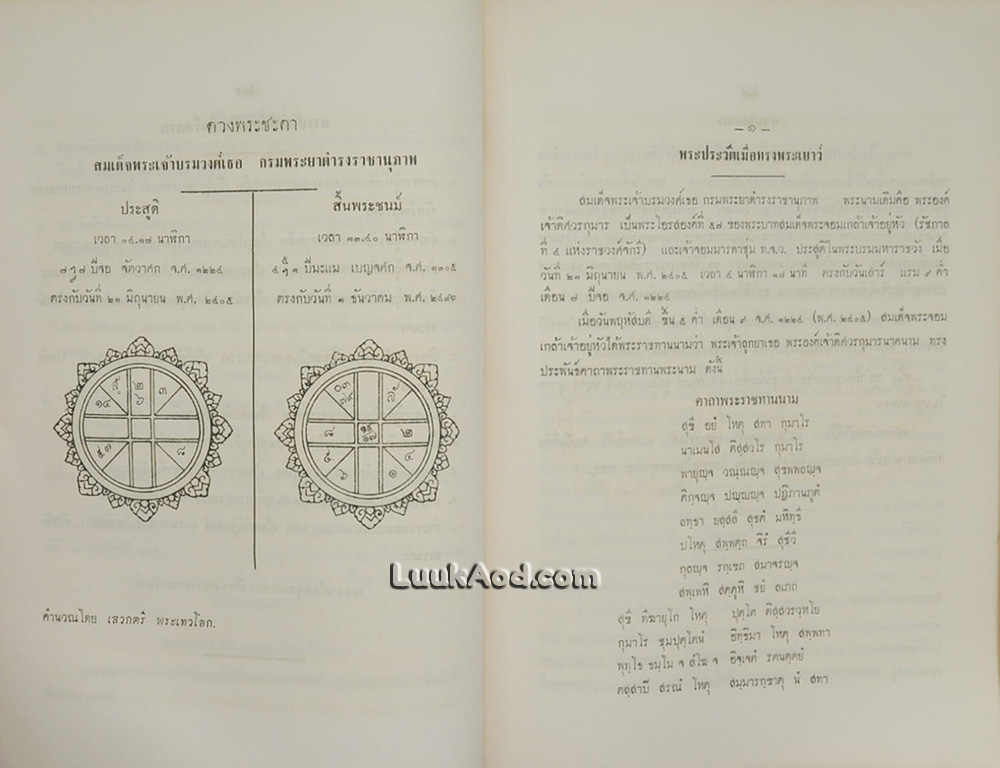 ดวงพระชะตา
สมเด็จพระเจ้าบรมวงศ์เธอ กรมพระยาดำรงราชานุภาพ
ประสูติ
เวลา ๐๔.๑๗ นาฬิกา
ปีจอ จัตวาศก จ.ศ. ๑๒๒๔
ตรงกับวันที่ ๒๑ มิถุนายน พ.ศ. ๒๔๐๕
สิ้นพระชนม์
เวลา ๑๓.๔๐ นาฬิกา
ปีมะแม เบญจศก จ.ศ. ๑๓๐๕
ตรงกับวันที่ ๑ ธันวาคม พ.ศ. ๒๔๘๖
คำนวณโดย เสวกตรี พระเทวโลก.
– ๑ –
พระประวัติเมื่อทรงพระเยาว์
สมเด็จพระเจ้าบรมวงศ์เธอ กรมพระยาดำรงราชานุภาพ พระนามเดิมคือ พระองค์
เจ้าดิศวรกุมาร เป็นพระโอรสองค์ที่ ๕๗ ของพระบาทสมเด็จพระจอมเกล้าเจ้าอยู่หัว (รัชกาล
ที่ ๔ แห่งราชวงศ์จักรี) และเจ้าจอมมารดาชุ่ม ท.จ.ว. ประสูติในพระบรมมหาราชวัง เมื่อ
วันที่ ๒๑ มิถุนายน พ.ศ. ๒๔๐๕ เวลา ๔ นาฬิกา ๑๗ นาที ตรงกับวันเสาร์ แรม ๙ ค่ำ
เดือน ๗ ปีจอ จ.ศ. ๑๒๒๔
เมื่อวันพฤหัสบดี ขึ้น ๕ ค่ำ เดือน ๙ จ.ศ. ๑๒๒๔ (พ.ศ. ๒๔๐๕) สมเด็จพระจอม
เกล้าเจ้าอยู่หัวได้พระราชทานนามว่า พระเจ้าลูกยาเธอ พระองค์เจ้าดิศวรกุมารนาคนาม ทรง
ประพันธ์คาถาพระราชทานพระนาม ดังนี้
คาถาพระราชทานนาม
สุขี อยํ โหตุ สทา กุมาโร
นาเมนโส ดิสฺสวโร กุมาโร
พายุญฺจ วณฺณญฺจ สุขพพลญฺจ
ติกฺขญฺจ ปญฺญญฺจ ปฏิภานภูตํ
ลทฺธา ยสสฺสี สุขตํ มหิทฺธี
ปโหตุ สพฺพตฺถ จิรํ สุชีวี
กุลญฺจ รกฺเขถ สมาจรญฺจ
สพฺเพหิ สตฺตูหิ ชยํ ลเภถ
สุขี ทีฆายุโก โหตุ ปุตฺโต ดิสฺสวรวฺหโย
กุมาโร ชุมปุตฺโตนํ อิทฺธิมา โหตุ สพฺพทา
พุทฺโธ ธมฺโม จ สํโฆ จ อิจฺเจตํ รตนตฺตยํ
ตสฺสาปิ สรณํ โหตุ สมฺมารกฺขาตุ นํ สทา
LuukAod.com